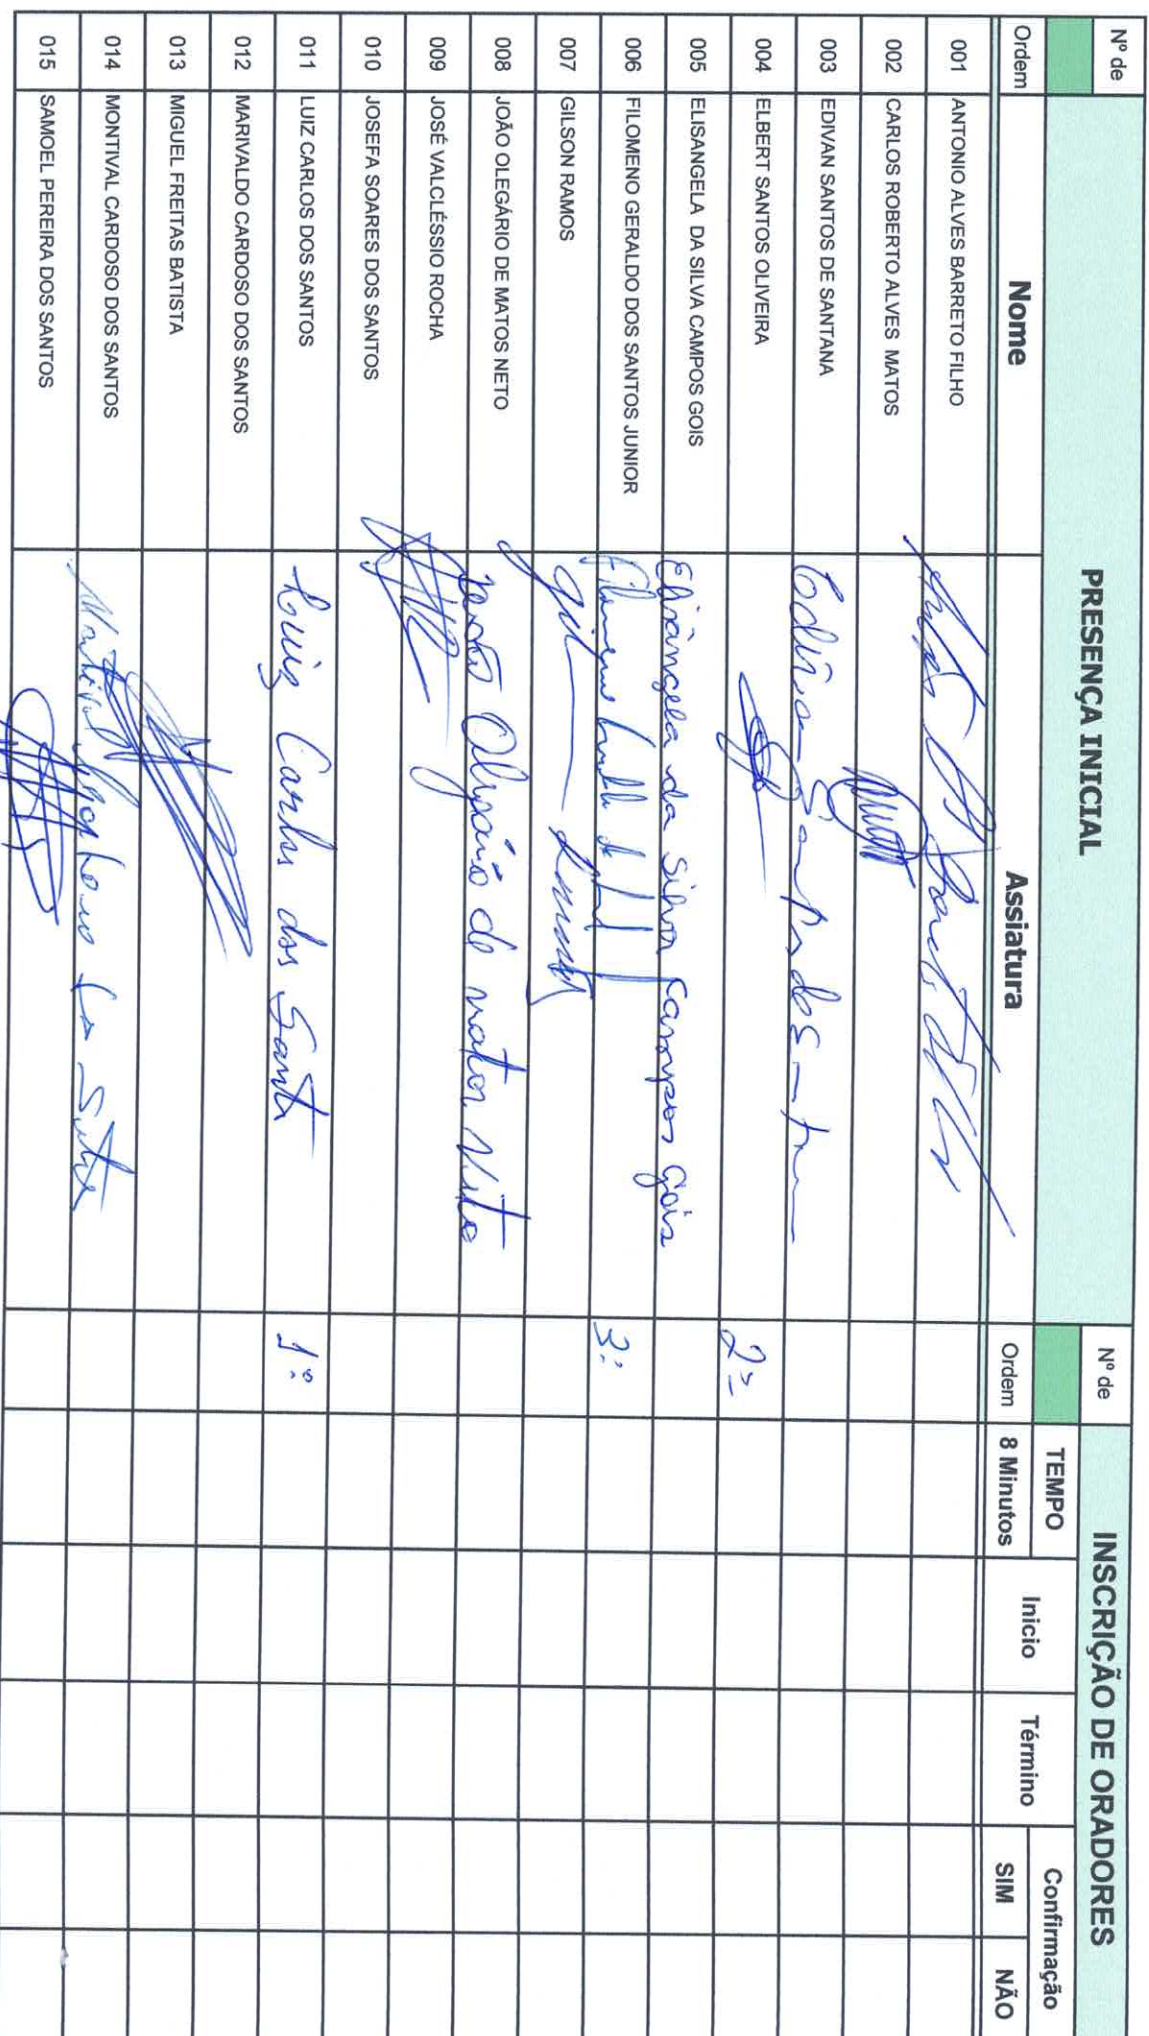 Nº de Ordem PRESENÇA INICIAL Nº de Ordem INSCRIÇÃO DE ORADORES
Nome Assiatura TEMPO 8 Minutos Inicio Término Confirmação SIM NÃO
001 ANTONIO ALVES BARRETO FILHO
002 CARLOS ROBERTO ALVES MATOS
003 EDIVAN SANTOS DE SANTANA
004 ELBERT SANTOS OLIVEIRA 2º
005 ELISANGELA DA SILVA CAMPOS GOIS Elisângela da Silva Campos Gois
006 FILOMENO GERALDO DOS SANTOS JUNIOR 3º
007 GILSON RAMOS
008 JOÃO OLEGÁRIO DE MATOS NETO João Olegário de matos Neto
009 JOSÉ VALCLÉSSIO ROCHA
010 JOSEFA SOARES DOS SANTOS
011 LUIZ CARLOS DOS SANTOS Luiz Carlos dos Santos 1º
012 MARIVALDO CARDOSO DOS SANTOS
013 MIGUEL FREITAS BATISTA
014 MONTIVAL CARDOSO DOS SANTOS
015 SAMOEL PEREIRA DOS SANTOS